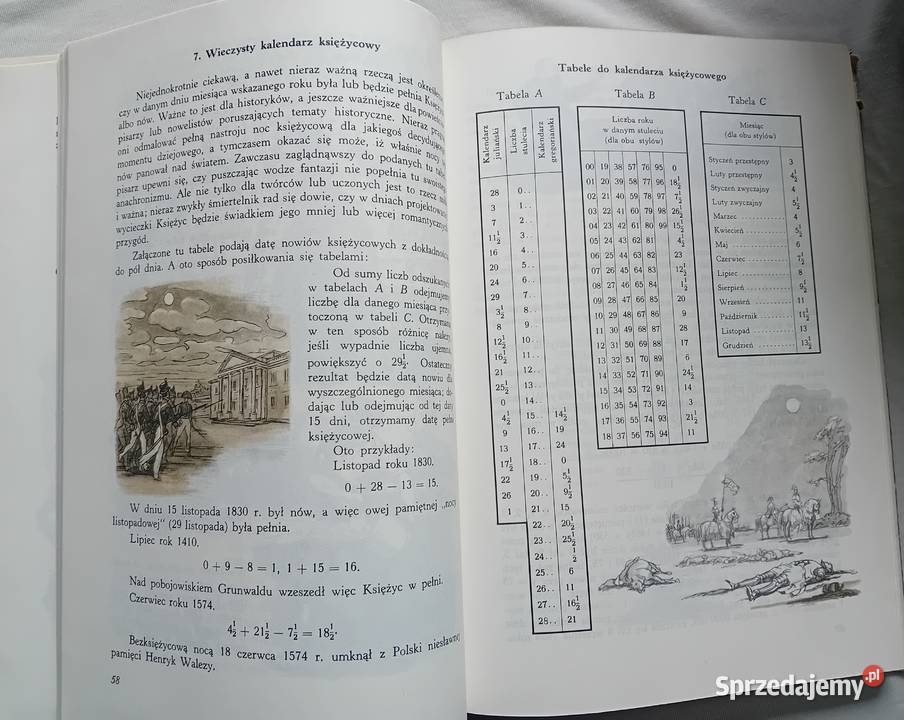 7. Wieczysty kalendarz księżycowy
Niejednokrotnie ciekawą, a nawet nieraz ważną rzeczą jest
czy w danym dniu miesiąca wskazanego roku była lub będzie pełnia
albo nów. Ważne to jest dla historyków, a jeszcze ważniejsze dla
pisarzy lub nowelistów poruszających tematy historyczne. Nieraz
oni odmalować pełną nastroju noc księżycową dla jakiegoś
momentu dziejowego, a tymczasem okazać się może, iż właśnie
nów panował nad światem. Zawczasu zaglądnąwszy do podanych tu
pisarz upewni się, czy puszczając wodze fantazji nie popełnia tu
anachronizmu. Ale nie tylko dla twórców lub uczonych jest to rzecz
i ważna; nieraz zwykły śmiertelnik rad się dowie, czy w dniach
wycieczki Księżyc będzie świadkiem jego mniej lub więcej romantycznych
przygód.
Załączone tu tabele podają datę nowiów księżycowych z dokładnością
do pół dnia. A oto sposób posiłkowania się tabelami:
Od sumy liczb
w tabelach A i B odejmujemy
liczbę dla danego miesiąca
toczoną w tabeli C.
w ten sposób różnicę należy
jeśli wypadnie liczba
powiększyć o 29½. Ostateczny
rezultat będzie datą nowiu dla
wyszczególnionego miesiąca;
dając lub odejmując od tej daty
15 dni, otrzymamy datę pełni
księżycowej.
Oto przykłady:
Listopad roku 1830.
0 + 28 − 13 = 15.
W dniu 15 listopada 1830 r. był nów, a więc owej pamiętnej „nocy
listopadowej" (29 listopada) była pełnia.
Lipiec rok 1410.
0 + 9 − 8 = 1, 1 + 15 = 16.
Nad pobojowiskiem Grunwaldu wzeszedł więc Księżyc w pełni.
Czerwiec roku 1574.
4½ + 21½ − 7½ = 18½.
Bezksiężycową nocą 18 czerwca 1574 r. umknął z Polski niesławnej
pamięci Henryk Walezy.
58
Tabele do kalendarza księżycowego
Tabela A
Kalendarz juliański
Liczba stulecia
Kalendarz gregoriański
28 0..
3 1..
7 2..
11½ 3..
16 4..
20 5..
24 6..
29 7..
3½ 8..
8 9..
12½ 10..
16½ 11..
21 12..
25½ 13..
0 14..
4½ 15.. 14½
9 16.. 19
13 17.. 24
17½ 18.. 0
22 19.. 5½
26 20.. 9½
1 21.. 15
22.. 20½
23.. 25½
24.. ½
25.. 6
26.. 11
27.. 16½
28.. 21
Tabela B
Liczba roku
w danym stuleciu
(dla obu stylów)
00 19 38 57 76 95 0
01 20 39 58 77 96 18½
02 21 40 59 78 97 7½
03 22 41 60 79 98 26½
04 23 42 61 80 99 15½
05 24 43 62 81 4½
06 25 44 63 82 23
07 26 45 64 83 12½
08 27 46 65 84 1½
09 28 47 66 85 20
10 29 48 67 86 9
11 30 49 68 87 28
12 31 50 69 88 17
13 32 51 70 89 6
14 33 52 71 90 24½
15 34 53 72 91 14
16 35 54 73 92 3
17 36 55 74 93 21½
18 37 56 75 94 11
Tabela C
Miesiąc
(dla obu stylów)
Styczeń przestępny 3
Luty przestępny 4½
Styczeń zwyczajny 4
Luty zwyczajny 5½
Marzec 4
Kwiecień 5½
Maj 6
Czerwiec 7½
Lipiec 8
Sierpień 9½
Wrzesień 11
Październik 11½
Listopad 13
Grudzień 13½
Sprzedajemy.pl